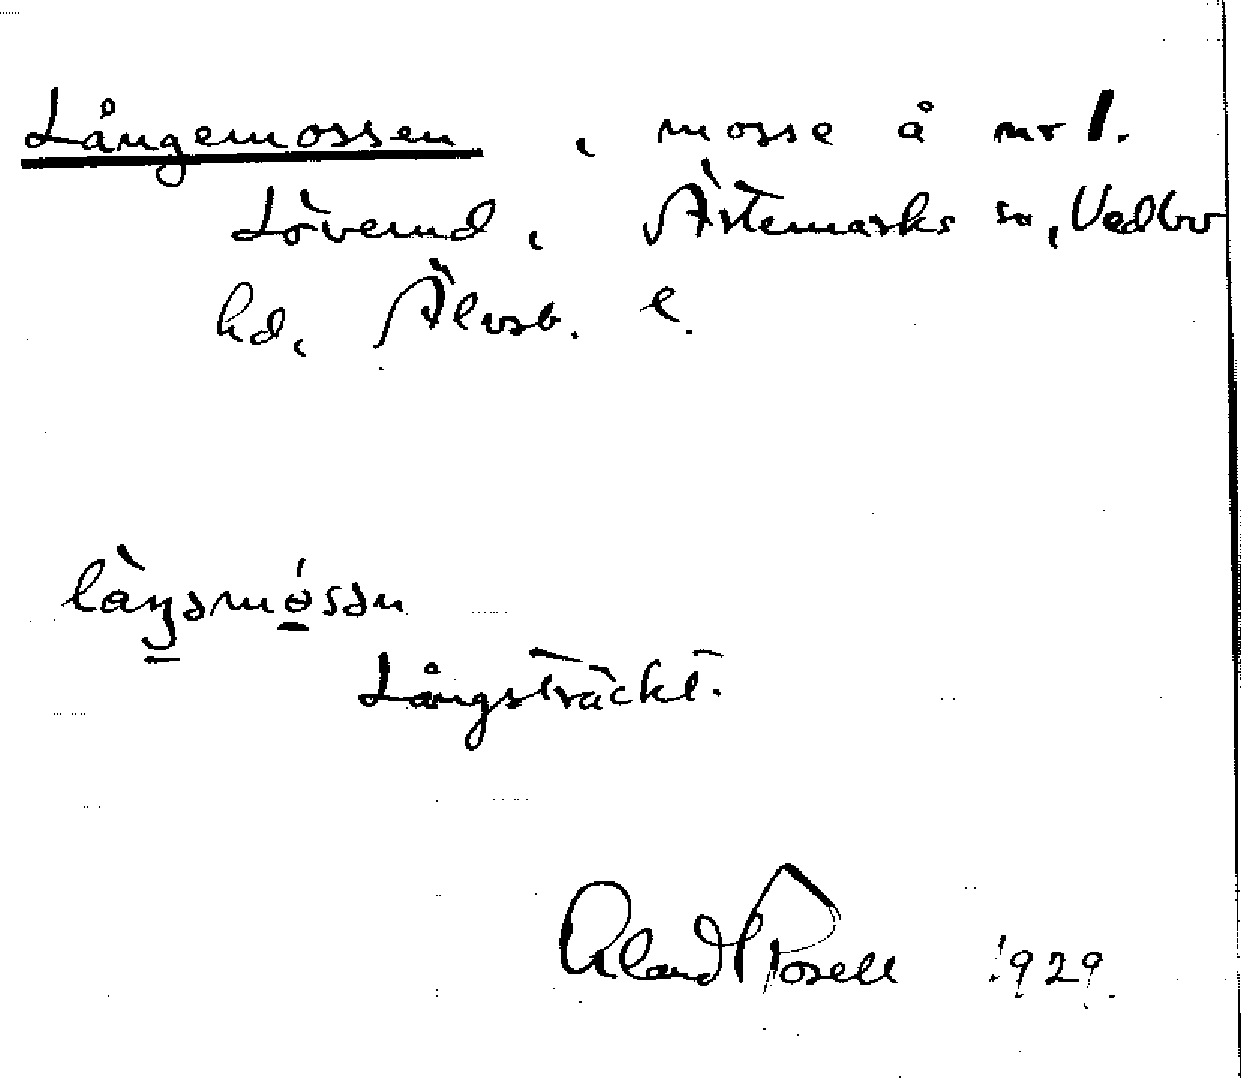 Långemossen, mosse å nr 1.
Löverud, Ärtemarks sn, Vedbo
hd, Älvsb. l.
Långsträckt.
Erland Rosell 1929